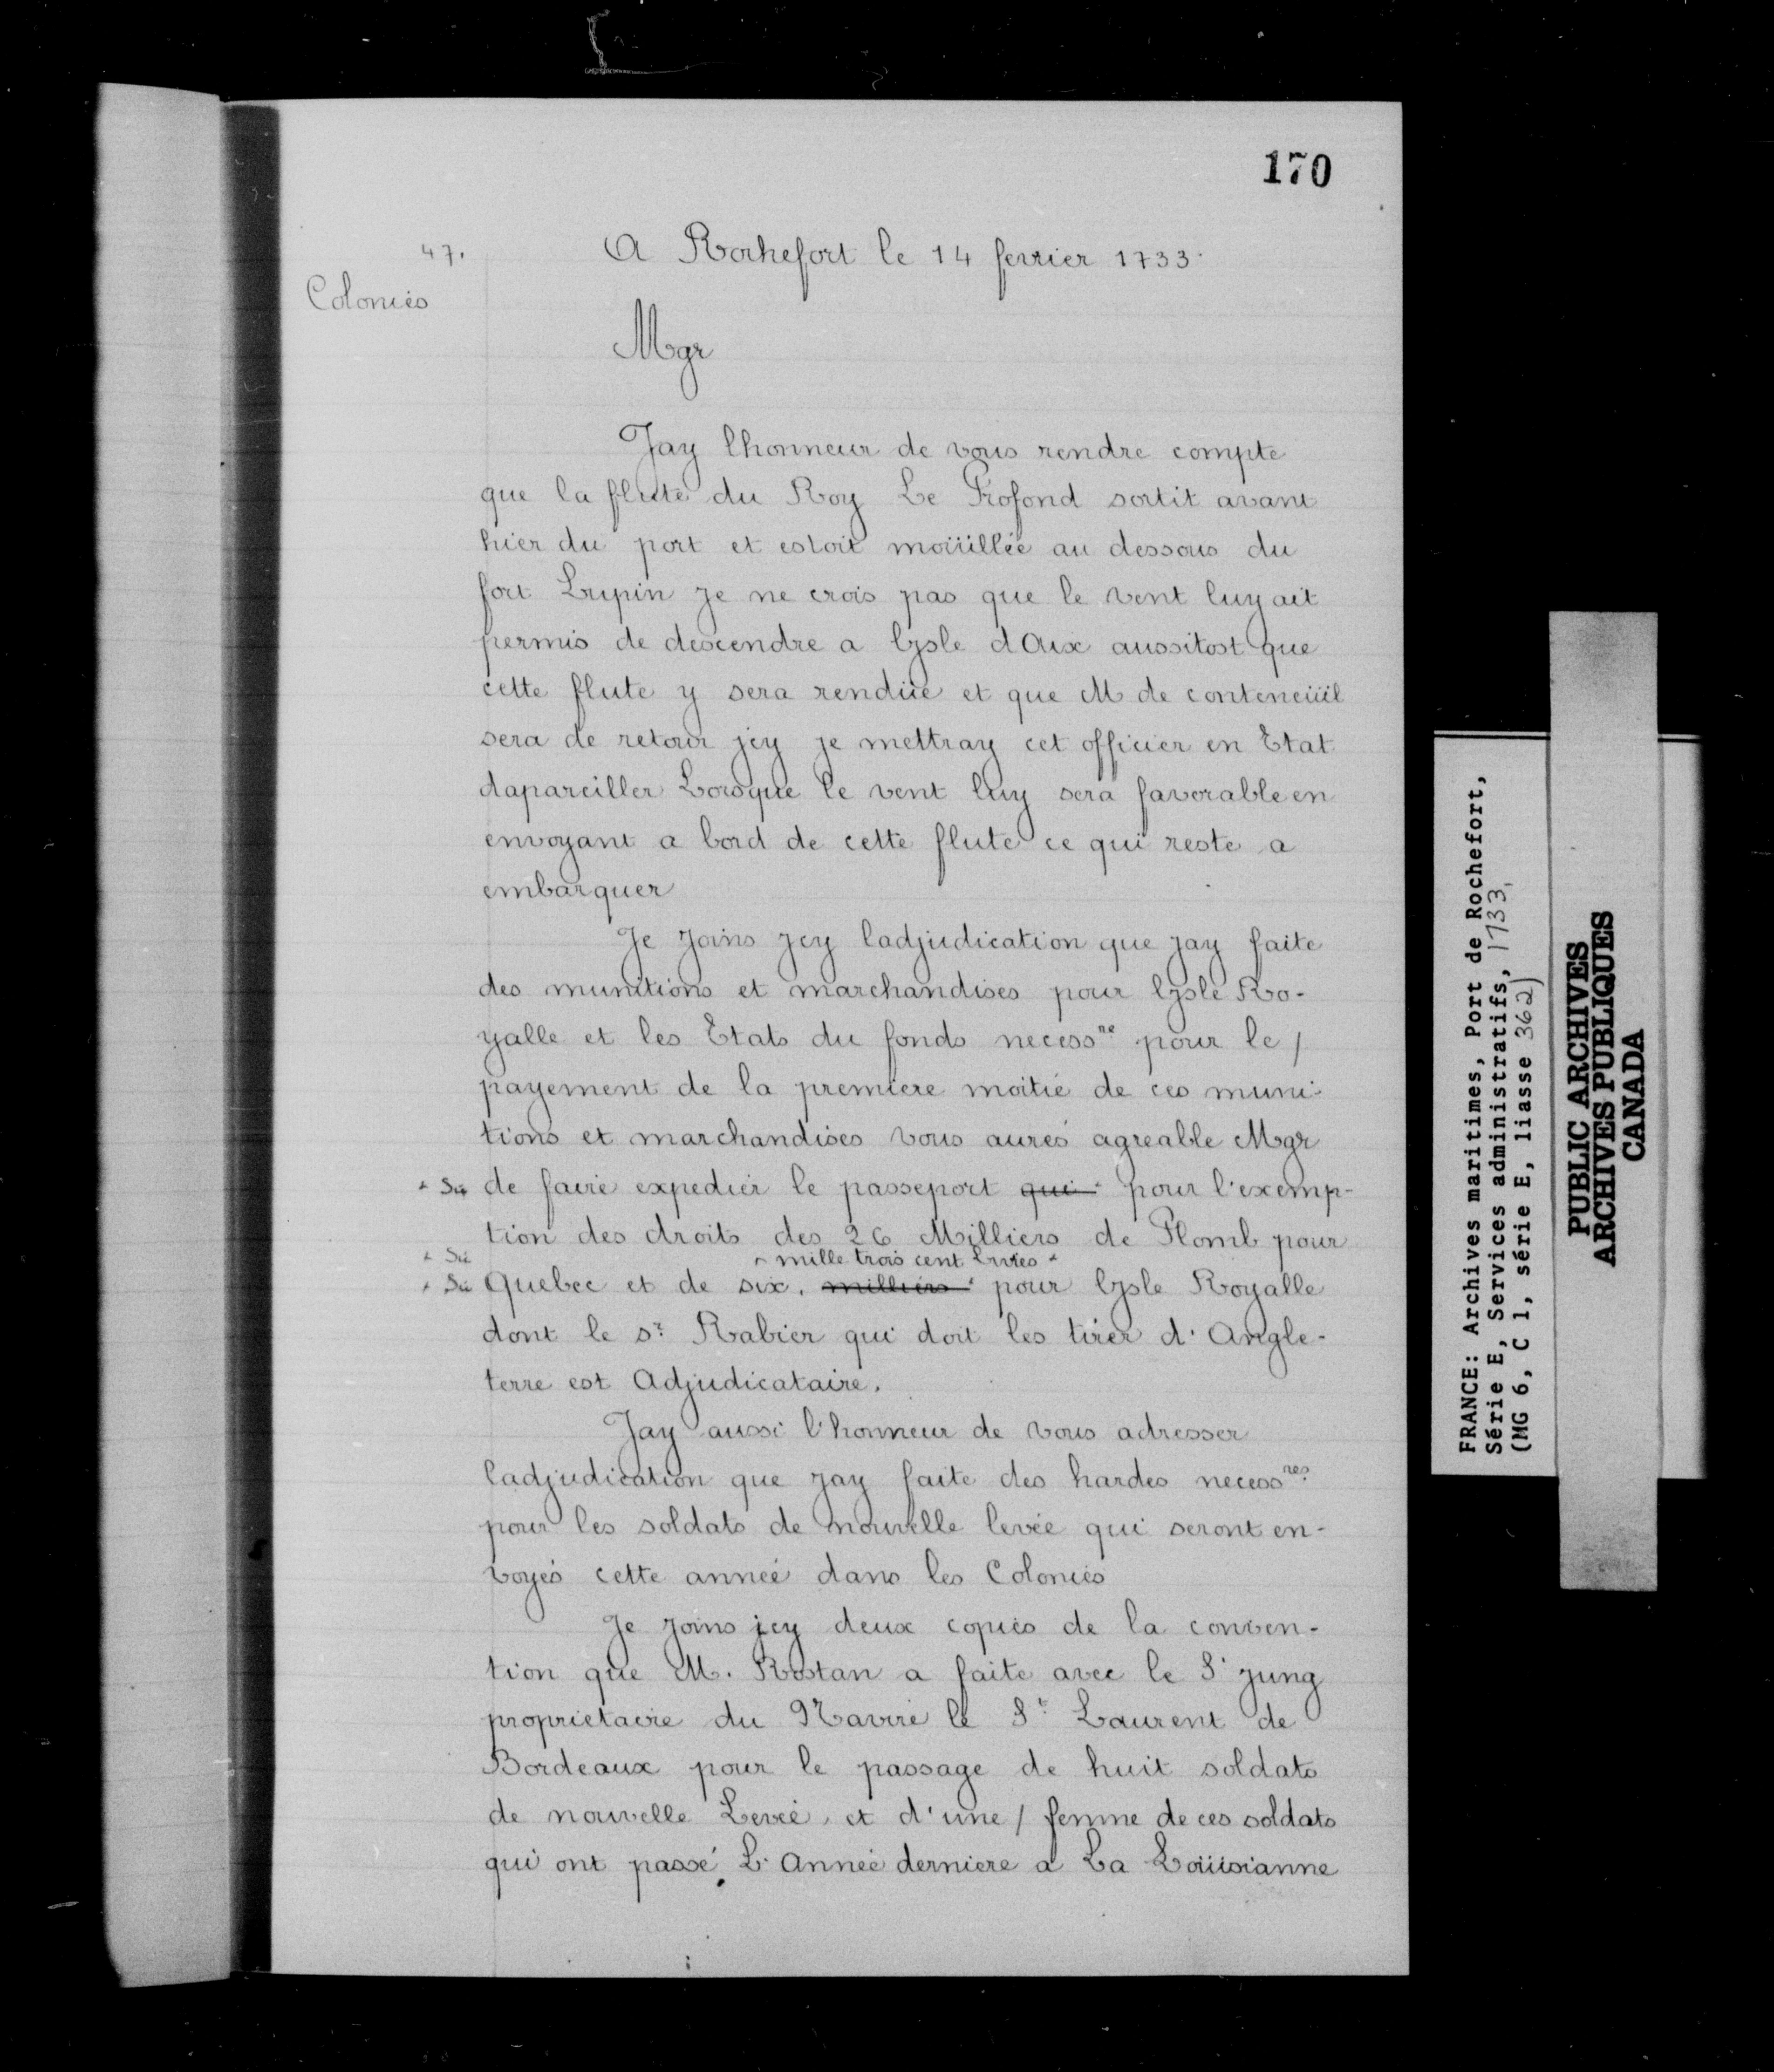 170
47.
A Rochefort le 14 fevrier 1733.
Colonies
Mgr
Jay lhonneur de vous rendre compte
que la flute du Roy Le Profond sortit avant
hier du port et estoit moüillée au dessous du
fort Lupin je ne crois pas que le vent luy ait
permis de descendre a lysle dAix aussitost que
cette flute y sera rendüe et que M de conteneüil
sera de retour jcy je mettray cet officier en Etat
dapareiller Lorsque le vent luy sera favorable en
envoyant a bord de cette flute ce qui reste a
embarquer
Je joins jcy ladjudication que jay faite
des munitions et marchandises pour lysle Ro-
yalle et les Etats du fonds necessre pour le /
payement de la premiere moitié de ces muni-
tions et marchandises vous aurés agreable Mgr
+ Sic de faire expedier le passeport qui + pour l'exemp-
tion des droits des 26 Milliers de Plomb pour
+ Sic + mille trois cent livres +
+ Sic Quebec et de six. milliers + pour lysle Royalle
dont le sr Rabier qui doit les tirer d'Angle-
terre est Adjudicataire.
Jay aussi l'honneur de vous adresser
ladjudication que jay faite des hardes necessres
pour les soldats de nouvelle levée qui seront en-
voyés cette année dans les Colonies
Je joins jcy deux copies de la conven-
tion que M. Rostan a faite avec le Sr jung
proprietaire du Navire le St Laurent de
Bordeaux pour le passage de huit soldats
de nouvelle Levée, et d'une / femme de ces soldats
qui ont passé L'Année derniere a La Loüisianne
FRANCE: Archives maritimes, Port de Rochefort,
Série E, Services administratifs, 1733,
(MG 6, C 1, série E, liasse 362)
PUBLIC ARCHIVES
ARCHIVES PUBLIQUES
CANADA